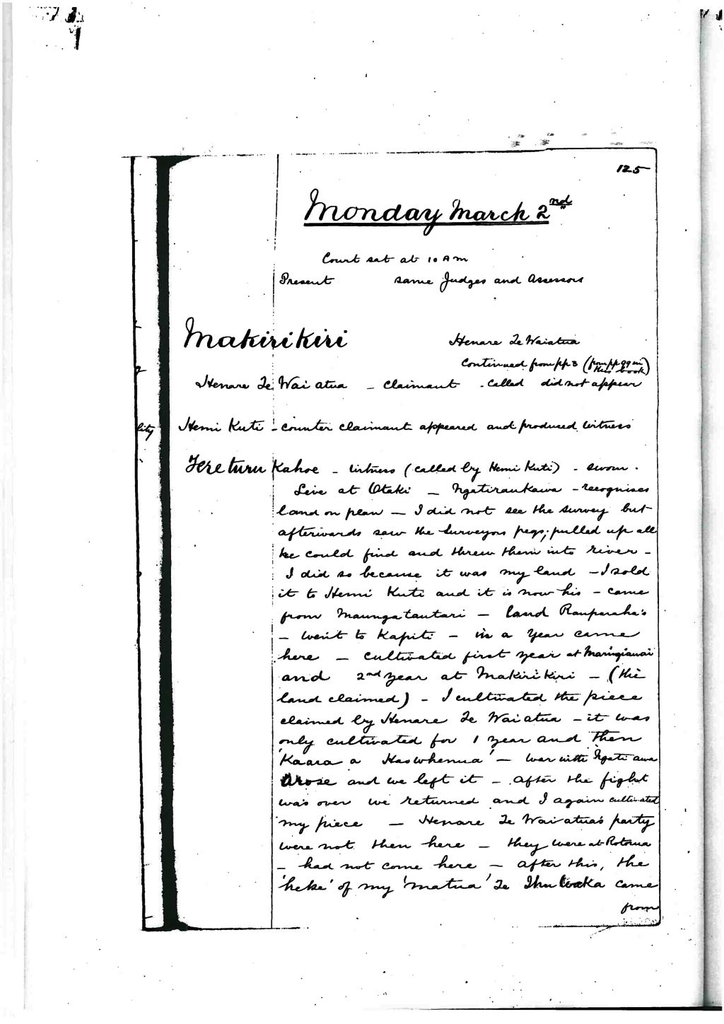 125
Monday March 2nd
Court sat at 10 Am
Present same Judges and Assessors
Makirikiri Henare Te Waiatua
Continued from pp 3 (from pp 99 in this book)
Henare Te Wai atua - claimant - called did not appear
Hemi Kuti - counter claimant appeared and produced witness
Kahoe - witness (called by Hemi Kuti) - sworn -
Live at Otaki - Ngatiraukawa - recognises
land on plan - I did not see the survey but
afterwards saw the surveyors pegs; pulled up all
he could find and threw them into river -
I did so because it was my land - I sold
it to Hemi Kuti and it is now his - came
from Maungatautari - land Rauparaha's
- went to Kapiti - in a year came
here - cultivated first year at
and 2nd year at Makirikiri - (the
land claimed) - I cultivated the piece
claimed by Henare Te Waiatua - it was
only cultivated for 1 year and then
'Kaara a Haowhenua' - war with Ngati awa
arose and we left it - after the fight
was over we returned and I again cultivated
my piece - Henare Te Waiatua's party
were not then here - they were at Rotorua
- had not come here - after this, the
'heke' of my 'matua' Te Ihu Waka came
from